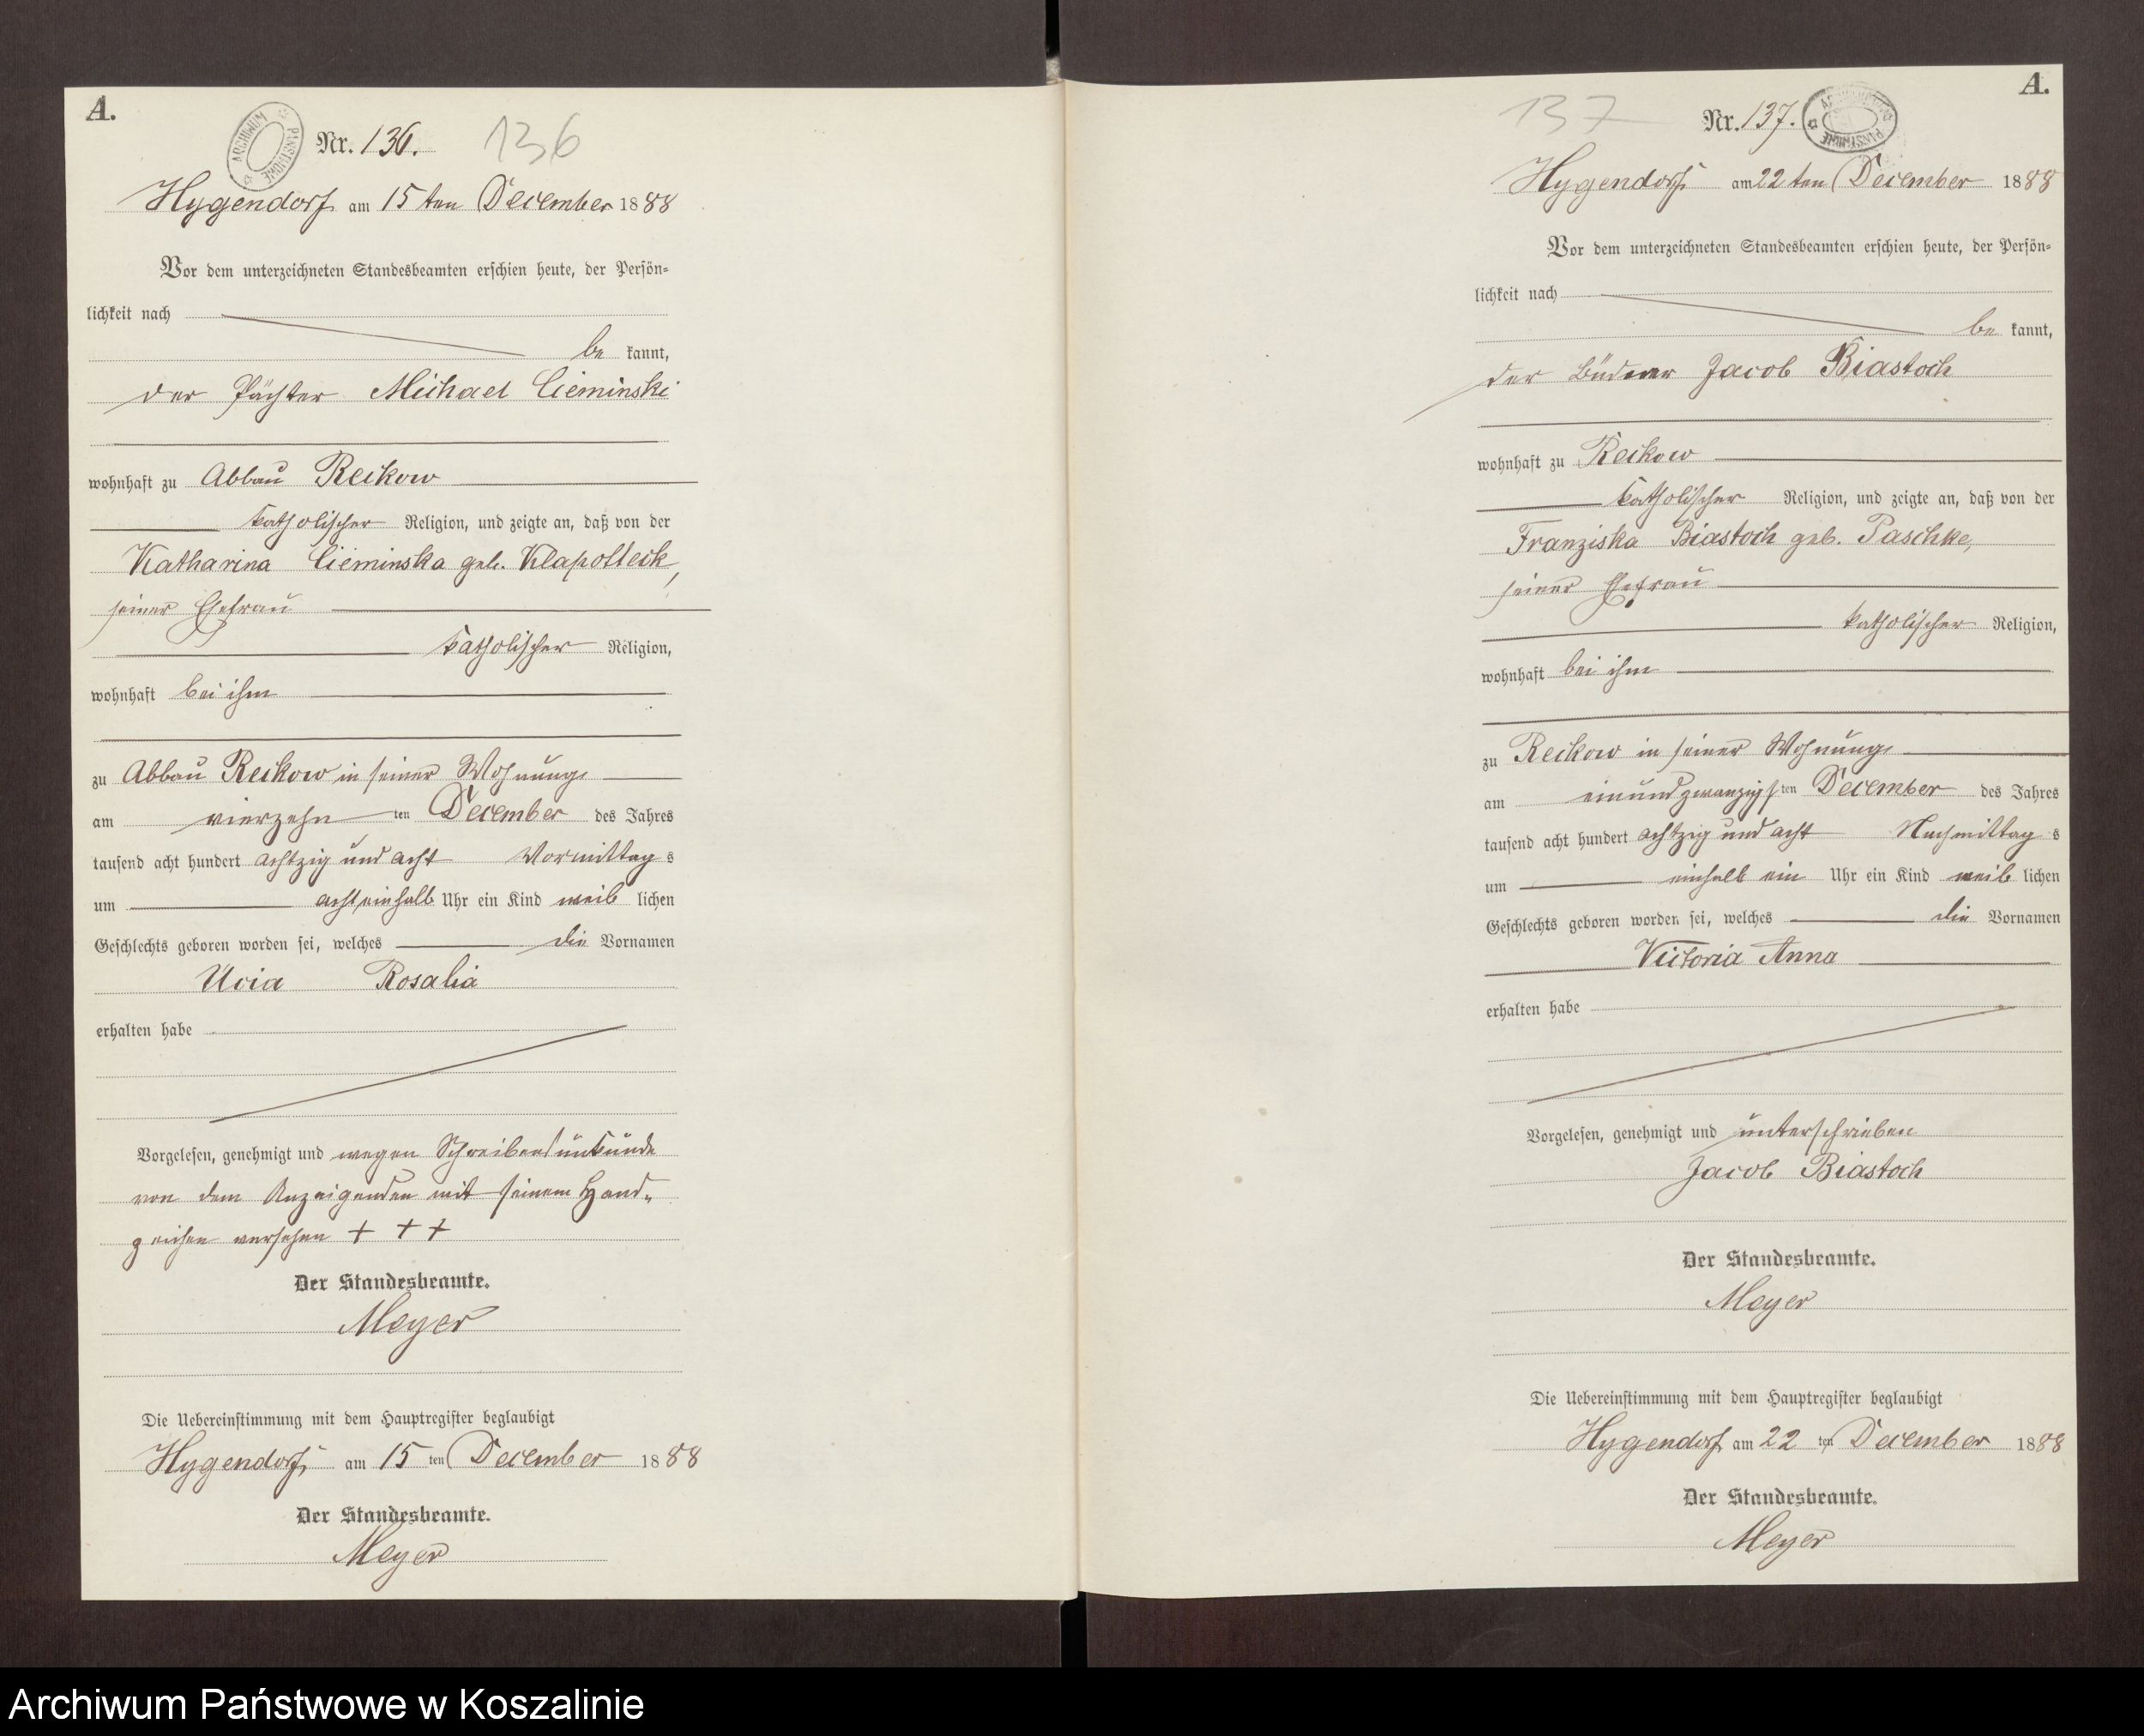 A.
ARCHIWUM PAŃSTWOWE
Nr. 136.
136
Hygendorf am 15ten December 1888
Vor dem unterzeichneten Standesbeamten erschien heute, der Persön=
lichkeit nach
be kannt,
der Pächter Michael Cieminski
wohnhaft zu Abbau Reckow
katholischer Religion, und zeigte an, daß von der
Katharina Cieminska geb. Klapotteck,
seiner Ehefrau
katholischer Religion,
wohnhaft bei ihm
zu Abbau Reckow in seiner Wohnung
am vierzehn ten December des Jahres
tausend acht hundert achtzig und acht Vormittag s
um achteinhalb Uhr ein Kind weib lichen
Geschlechts geboren worden sei, welches die Vornamen
Rosalia
erhalten habe
Vorgelesen, genehmigt und wegen Schreibensunkunde
von dem Anzeigenden mit seinem Hand=
zeichen versehen + + +
Der Standesbeamte.
Meyer
Die Uebereinstimmung mit dem Hauptregister beglaubigt
Hygendorf am 15 ten December 1888
Der Standesbeamte.
Meyer
A.
137
Nr. 137.
ARCHIWUM PAŃSTWOWE
Hygendorf am 22ten December 1888
Vor dem unterzeichneten Standesbeamten erschien heute, der Persön=
lichkeit nach
be kannt,
der Büdner Jacob Biastoch
wohnhaft zu Reckow
katholischer Religion, und zeigte an, daß von der
Franziska Biastoch geb. Paschke,
seiner Ehefrau
katholischer Religion,
wohnhaft bei ihm
zu Reckow in seiner Wohnung
am einundzwanzigs ten December des Jahres
tausend acht hundert achtzig und acht Nachmittag s
um einhalb ein Uhr ein Kind weib lichen
Geschlechts geboren worden sei, welches die Vornamen
Victoria Anna
erhalten habe
Vorgelesen, genehmigt und unterschrieben
Jacob Biastoch
Der Standesbeamte.
Meyer
Die Uebereinstimmung mit dem Hauptregister beglaubigt
Hygendorf am 22 ten December 1888
Der Standesbeamte.
Meyer
Archiwum Państwowe w Koszalinie